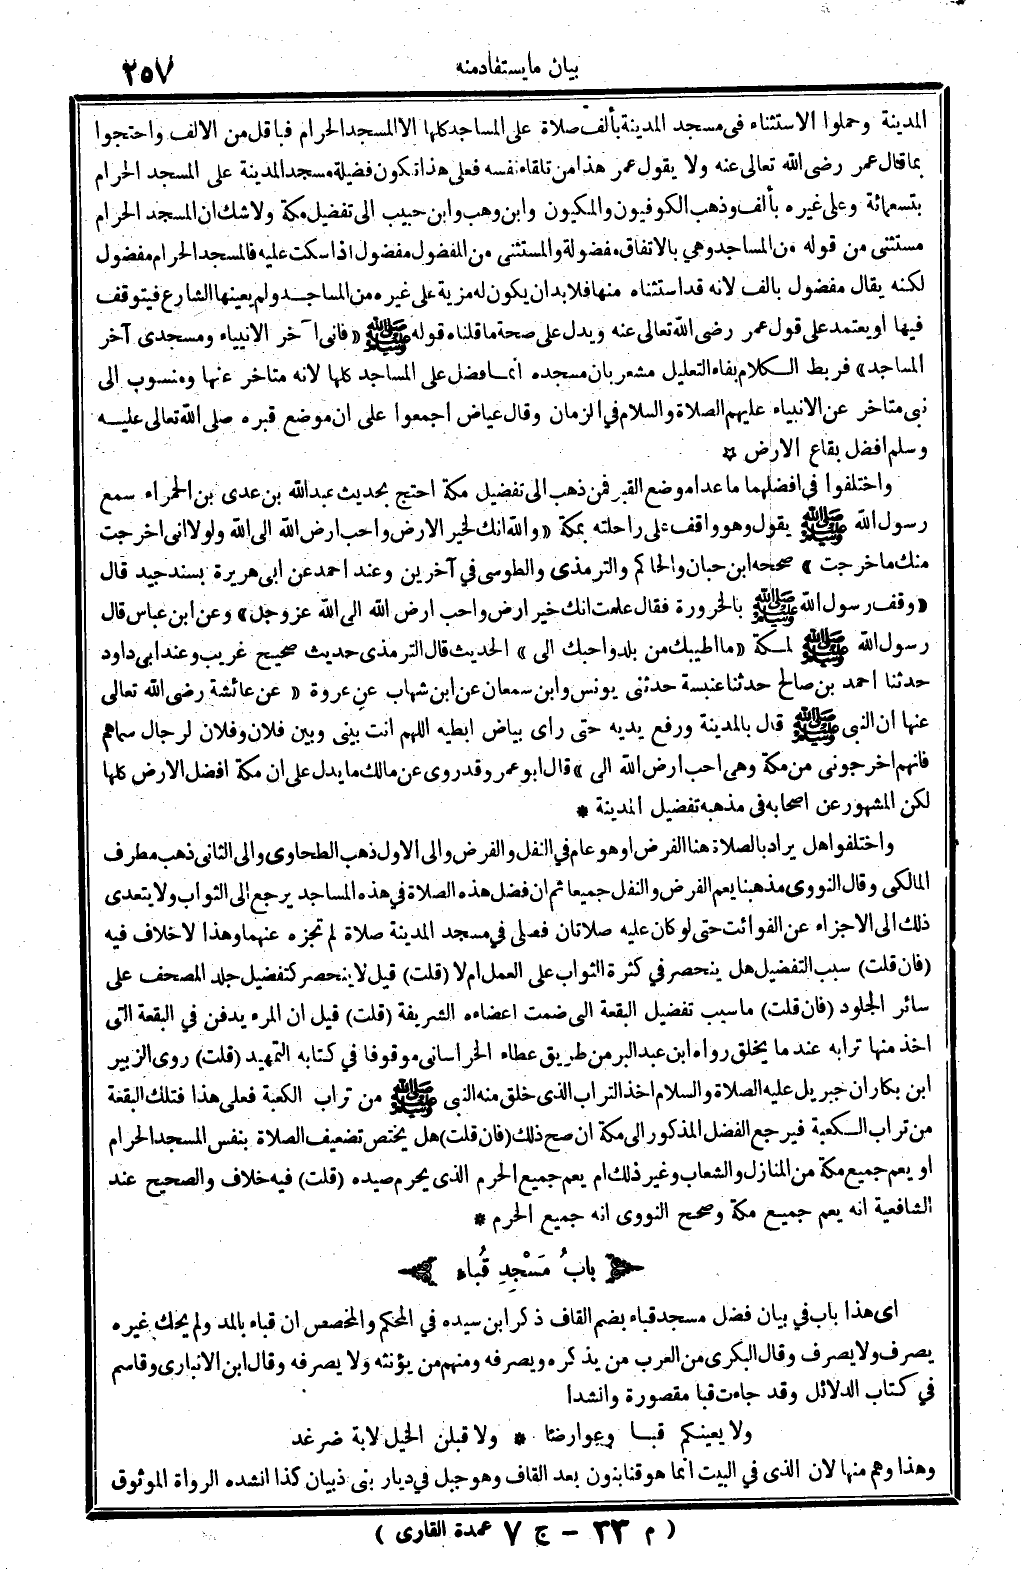 بيان ما يستفاد منه
٢٥٧
المدينة وحملوا الاستثناء فى مسجد المدينة بألف صلاة على المساجد كلها الا المسجد الحرام فباقل من الالف واحتجوا
بما قال عمر رضى الله تعالى عنه ولا يقول عمر هذا من تلقاء نفسه فعلى هذا تكون فضيلة مسجد المدينة على المسجد الحرام
بتسعمائة وعلى غيره بألف وذهب الكوفيون والمكيون وابن وهب وابن حبيب الى تفضيل مكة ولا شك ان المسجد الحرام
مستثنى من قوله من المساجد وهي بالاتفاق مفضولة والمستثنى من المفضول مفضول اذا سكت عليه فالمسجد الحرام مفضول
لكنه يقال مفضول بالف لانه قد استثناه منها فلا بد ان يكون له مزية على غيره من المساجد ولم يعينها الشارع فيتوقف
فيها او يعتمد على قول عمر رضى الله تعالى عنه ويدل على صحة ما قلناه قوله ﷺ «فانى آخر الانبياء ومسجدى آخر
المساجد» فربط الكلام بفاء التعليل مشعر بان مسجده انما فضل على المساجد كلها لانه متاخر عنها ومنسوب الى
نبى متاخر عن الانبياء عليهم الصلاة والسلام في الزمان وقال عياض اجمعوا على ان موضع قبره صلى الله تعالى عليه
وسلم افضل بقاع الارض ☆
واختلفوا في افضلهما ما عدا موضع القبر فمن ذهب الى تفضيل مكة احتج بحديث عبدالله بن عدى بن الحمراء سمع
رسول الله ﷺ يقول وهو واقف على راحلته بمكة «والله انك لخير الارض واحب ارض الله الى الله ولولا انى اخرجت
منك ما خرجت» صححه ابن حبان والحاكم والترمذى والطوسى في آخرين وعند احمد عن ابى هريرة بسند جيد قال
«وقف رسول الله ﷺ بالحزورة فقال علمت انك خير ارض واحب ارض الله الى الله عز وجل» وعن ابن عباس قال
رسول الله ﷺ لمكة «ما اطيبك من بلد واحبك الى» الحديث قال الترمذى حديث صحيح غريب وعند ابى داود
حدثنا احمد بن صالح حدثنا عنبسة حدثنى يونس وابن سمعان عن ابن شهاب عن عروة «عن عائشة رضى الله تعالى
عنها ان النبى ﷺ قال بالمدينة ورفع يديه حتى راى بياض ابطيه اللهم انت بينى وبين فلان وفلان لرجال سماهم
فانهم اخرجونى من مكة وهى احب ارض الله الى» قال ابو عمر وقد روى عن مالك ما يدل على ان مكة افضل الارض كلها
لكن المشهور عن اصحابه فى مذهبه تفضيل المدينة *
واختلفوا هل يراد بالصلاة هنا الفرض او هو عام في النفل والفرض والى الاول ذهب الطحاوى والى الثانى ذهب مطرف
المالكى وقال النووى مذهبنا يعم الفرض والنفل جميعا ثم ان فضل هذه الصلاة في هذه المساجد يرجع الى الثواب ولا يتعدى
ذلك الى الاجزاء عن الفوائت حتى لو كان عليه صلاتان فصلى في مسجد المدينة صلاة لم تجزه عنهما وهذا لا خلاف فيه
(فان قلت) سبب التفضيل هل ينحصر في كثرة الثواب على العمل ام لا (قلت) قيل لا ينحصر كتفضيل جلد المصحف على
سائر الجلود (فان قلت) ما سبب تفضيل البقعة التى ضمت اعضاءه الشريفة (قلت) قيل ان المرء يدفن في البقعة التى
اخذ منها ترابه عند ما يخلق رواه ابن عبد البر من طريق عطاء الخراسانى موقوفا في كتابه التمهيد (قلت) روى الزبير
ابن بكار ان جبريل عليه الصلاة والسلام اخذ التراب الذى خلق منه النبى ﷺ من تراب الكعبة فعلى هذا فتلك البقعة
من تراب الكعبة فيرجع الفضل المذكور الى مكة ان صح ذلك (فان قلت) هل يختص تضعيف الصلاة بنفس المسجد الحرام
او يعم جميع مكة من المنازل والشعاب وغير ذلك ام يعم جميع الحرم الذى يحرم صيده (قلت) فيه خلاف والصحيح عند
الشافعية انه يعم جميع مكة وصحح النووى انه جميع الحرم *
بابُ مَسْجِدِ قُباء
اى هذا باب في بيان فضل مسجد قباء بضم القاف ذكر ابن سيده في المحكم والمخصص ان قباء بالمد ولم يحك غيره
يصرف ولا يصرف وقال البكرى من العرب من يذكره ويصرفه ومنهم من يؤنثه ولا يصرفه وقال ابن الانبارى وقاسم
في كتاب الدلائل وقد جاءت قبا مقصورة وانشدا
ولا يعينكم قبا وعوارضا * ولا قبلن الخيل لابة ضرغد
وهذا وهم منها لان الذى في البيت انما هو قنا بنون بعد القاف وهو جبل في ديار بنى ذبيان كذا انشده الرواة الموثوق
( م ٣٣ - ج ٧ عمدة القارى )